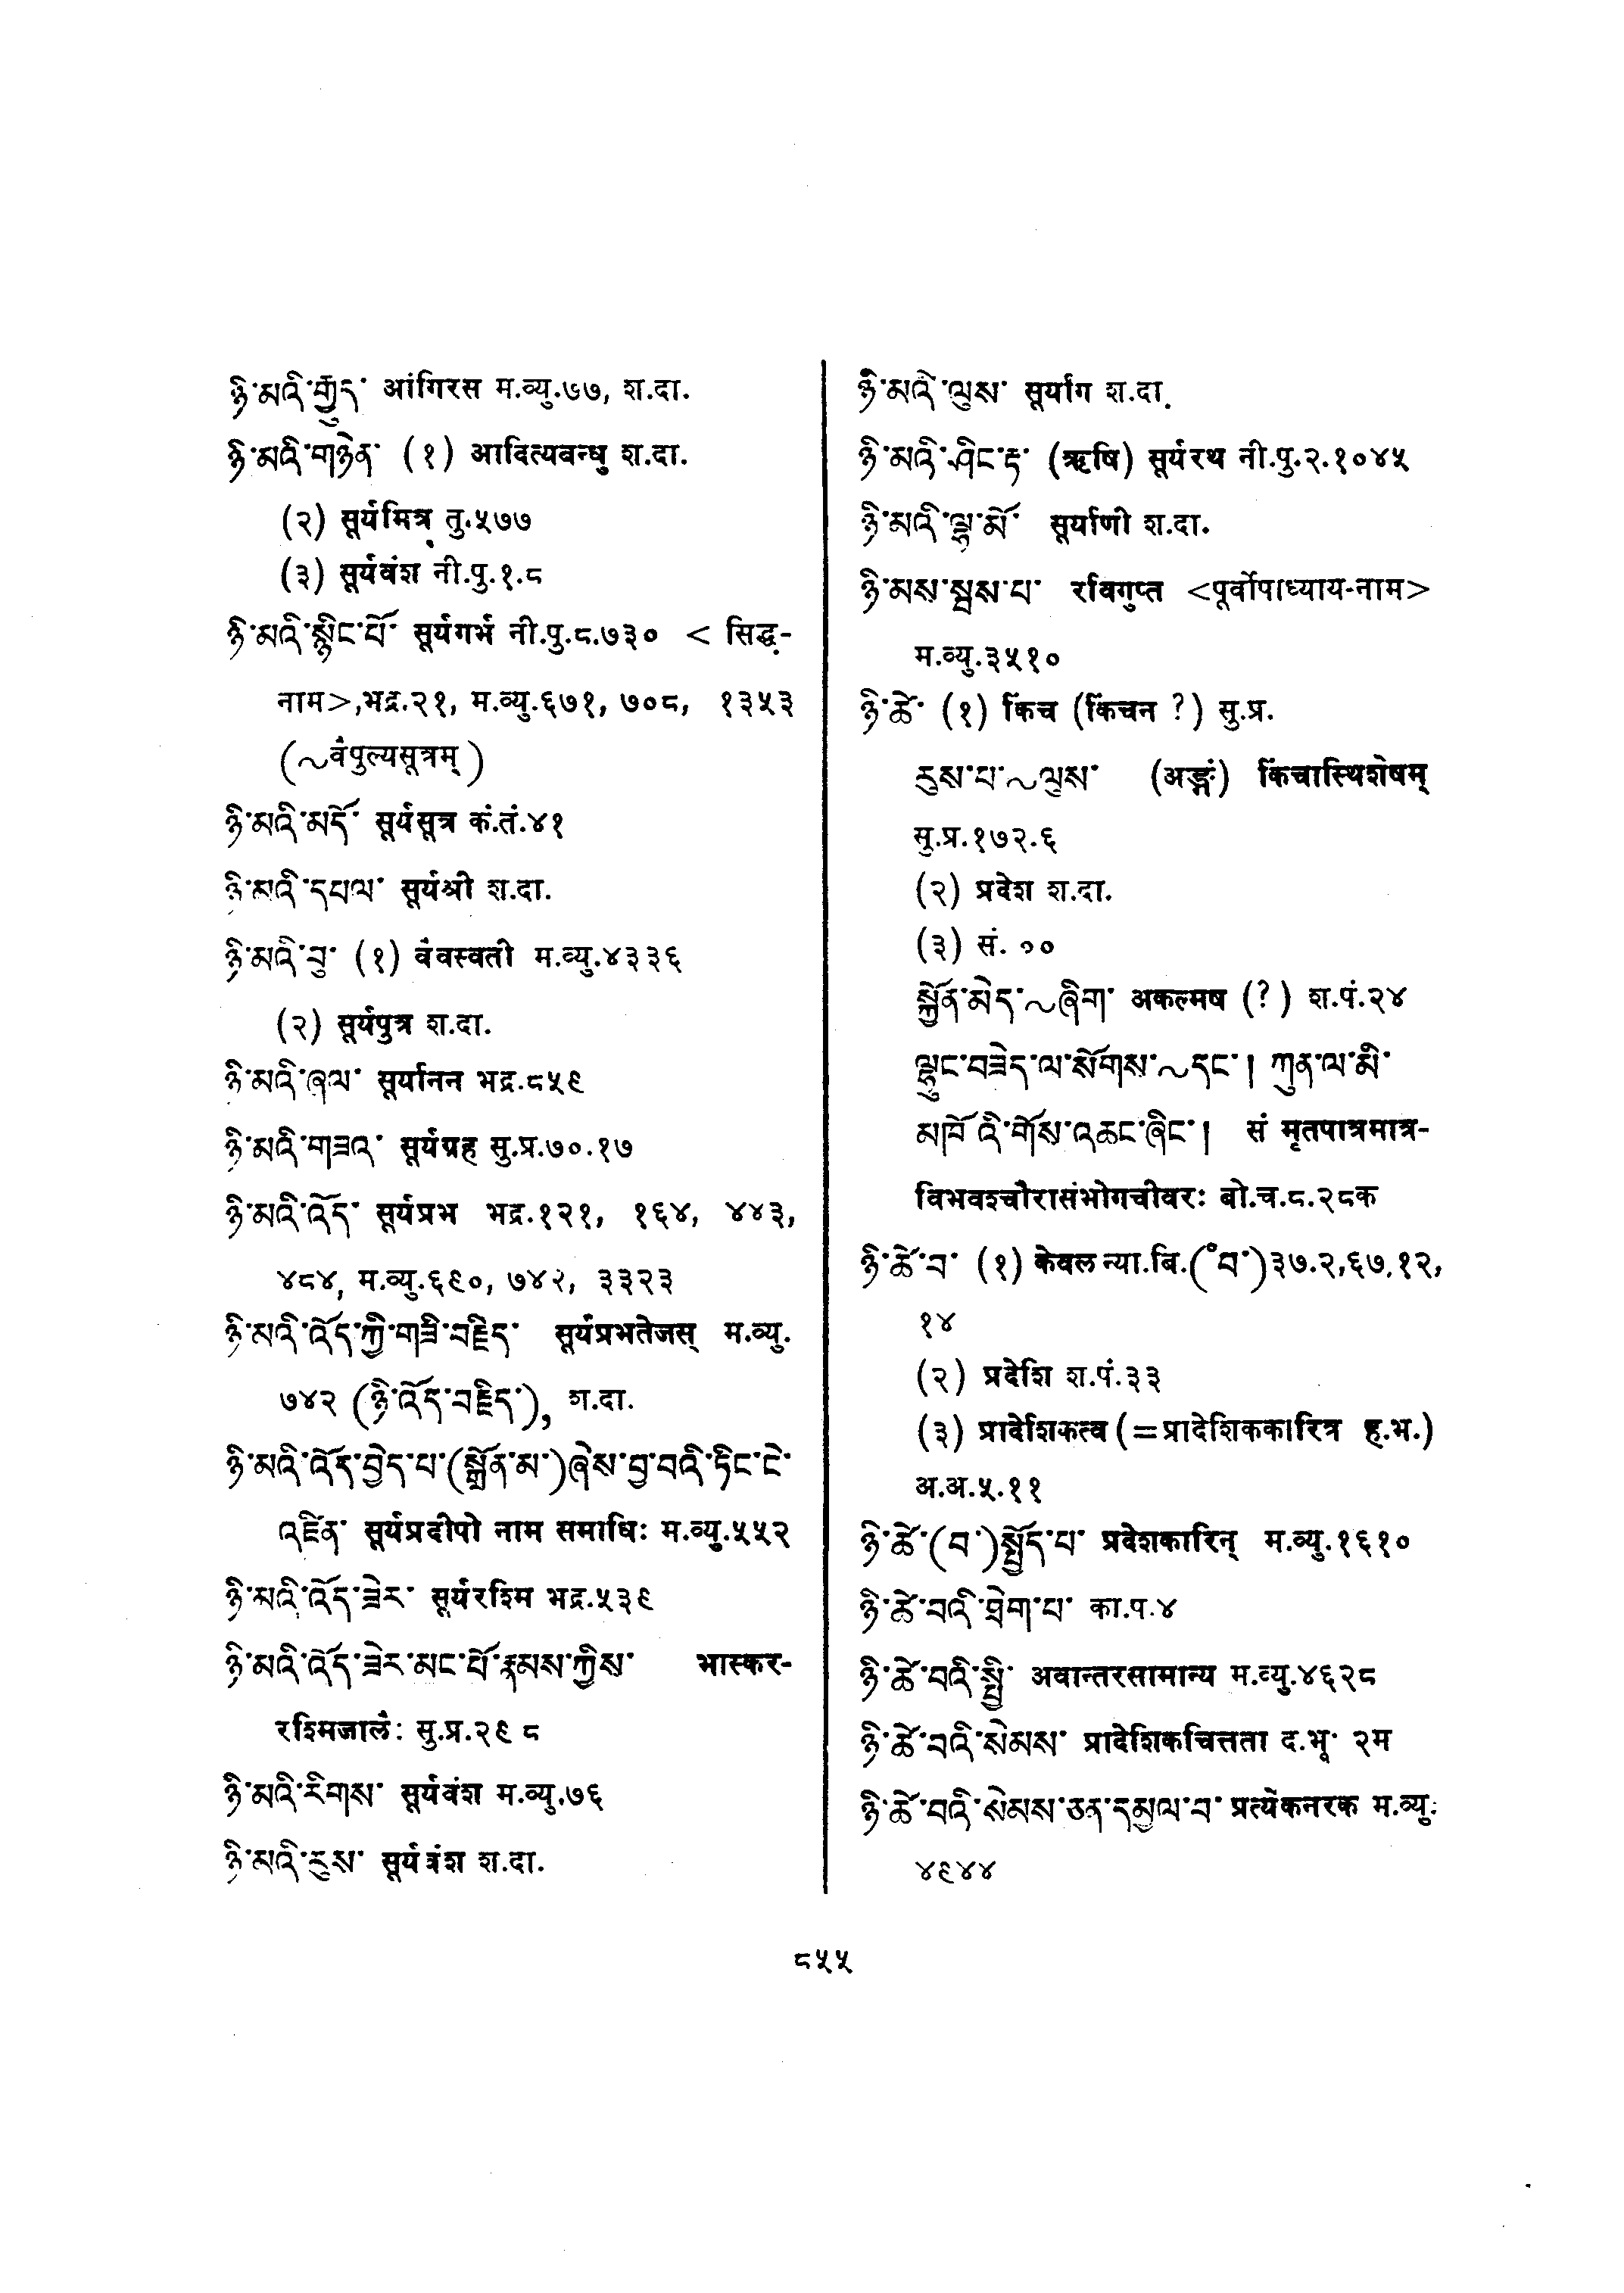 ཉི་མའི་རྒྱུད་ आंगिरस म.व्यु.७७, श.दा.
ཉི་མའི་གཉེན་ (१) आदित्यबन्धु श.दा.
(२) सूर्यमित्र तु.५७७
(३) सूर्यवंश नी.पु.१.८
ཉི་མའི་སྙིང་པོ་ सूर्यगर्भ नी.पु.८.७३० < सिद्ध-
नाम>,भद्र.२१, म.व्यु.६७१, ७०८, १३५३
(~वैपुल्यसूत्रम्)
ཉི་མའི་མདོ་ सूर्यसूत्र कं.तं.४१
ཉི་མའི་དཔལ་ सूर्यश्री श.दा.
ཉི་མའི་བུ་ (१) वैवस्वती म.व्यु.४३३६
(२) सूर्यपुत्र श.दा.
ཉི་མའི་ཞལ་ सूर्यानन भद्र.८५९
ཉི་མའི་གཟའ་ सूर्यग्रह सु.प्र.७०.१७
ཉི་མའི་འོད་ सूर्यप्रभ भद्र.१२१, १६४, ४४३,
४८४, म.व्यु.६९०, ७४२, ३३२३
ཉི་མའི་འོད་ཀྱི་གཟི་བརྗིད་ सूर्यप्रभतेजस् म.व्यु.
७४२ (ཉི་འོད་བརྗིད་), श.दा.
ཉི་མའི་འོད་བྱེད་པ་(སྒྲོན་མ་)ཞེས་བྱ་བའི་ཏིང་ངེ་
འཛིན་ सूर्यप्रदीपो नाम समाधिः म.व्यु.५५२
ཉི་མའི་འོད་ཟེར་ सूर्यरश्मि भद्र.५३९
ཉི་མའི་འོད་ཟེར་མང་པོ་རྣམས་ཀྱིས་ भास्कर-
रश्मिजालैः सु.प्र.२९ ८
ཉི་མའི་རིགས་ सूर्यवंश म.व्यु.७६
ཉི་མའི་རུས་ सूर्यवंश श.दा.
ཉི་མའི་ལུས་ सूर्यांग श.दा.
ཉི་མའི་ཤིང་རྟ་ (ऋषि) सूर्यरथ नी.पु.२.१०४५
ཉི་མའི་ལྷ་མོ་ सूर्याणी श.दा.
ཉི་མས་སྦས་པ་ रविगुप्त <पूर्वोपाध्याय-नाम>
म.व्यु.३५१०
ཉི་ཚེ་ (१) किंच (किंचन ?) सु.प्र.
རུས་པ་~ལུས་ (अङ्गं) किंचास्थिशेषम्
सु.प्र.१७२.६
(२) प्रदेश श.दा.
(३) सं. ००
སྐྱོན་མེད་~ཞིག་ अकल्मष (?) श.पं.२४
ལྷུང་བཟེད་ལ་སོགས་~དང་། ཀུན་ལ་མི་
མཁོ་འི་གོས་འཆང་ཞིང་། सं मृतपात्रमात्र-
विभवश्चौरासंभोगचीवरः बो.च.८.२८क
ཉི་ཚེ་བ་ (१) केवल न्या.बि.(°བ་)३७.२,६७.१२,
१४
(२) प्रदेशि श.पं.३३
(३) प्रादेशिकत्व (=प्रादेशिककारित्र ह.भ.)
अ.अ.५.११
ཉི་ཚེ་(བ་)སྤྱོད་པ་ प्रदेशकारिन् म.व्यु.१६१०
ཉི་ཚེ་བའི་ཐེག་པ་ का.प.४
ཉི་ཚེ་བའི་སྤྱི་ अवान्तरसामान्य म.व्यु.४६२८
ཉི་ཚེ་བའི་སེམས་ प्रादेशिकचित्तता द.भू. २म
ཉི་ཚེ་བའི་སེམས་ཅན་དམྱལ་བ་ प्रत्येकनरक म.व्यु.
४९४४
८५५